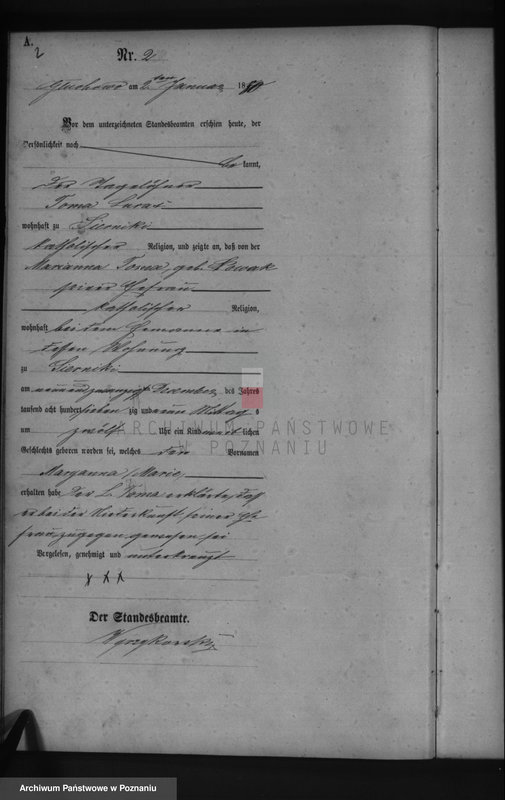 A.
2
Nr. 2
Gluchowo am 2 ten Januar 1880
Vor dem unterzeichneten Standesbeamten erschien heute, der
Persönlichkeit nach
be kannt,
der Tagelöhner
Toma Lucas
wohnhaft zu Siernicki
katholischer Religion, und zeigte an, daß von der
Marianna Toma, geb. Nowak
seiner Ehefrau
katholischer Religion,
wohnhaft bei dem Ehemanne in
dessen Wohnung
zu Siernicki
am neunundzwanzigsten Dezember des Jahres
tausend acht hundert sieben zig und neun Mittag s
um zwölf Uhr ein Kind weib lichen
Geschlechts geboren worden sei, welches den Vornamen
Maryanna /Marie
erhalten habe. Der L. Toma erklärte, daß
er bei der Niederkunft seiner Ehe
frau zugegen gewesen sei
Vorgelesen, genehmigt und unterkreuzt
x x x
Der Standesbeamte.
ARCHIWUM PAŃSTWOWE
W POZNANIU
Archiwum Państwowe w Poznaniu